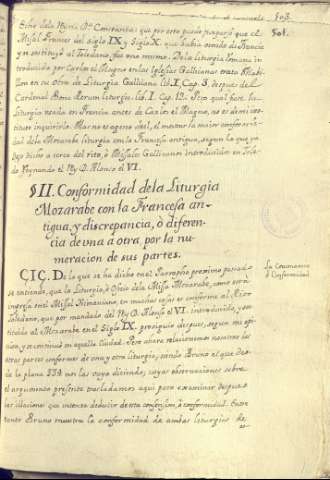 103.
Sol.
Missal Frances del siglo IX y siglo X. que havia venido de Francia
y se restituyó al Toledano fue uno mismo. De la liturgia Romana in-
troducida por Carlos el Magno en las Iglesias Gallicanas trata Mabi-
llon en su Obra de Liturgia Gallicana lib. I. Cap. 3. despues del
Cardenal Bona Rerum liturgic. lib. I. Cap. 12.
liturgia usada en Francia antes de Carlos el Magno, no es de mi ins-
tituto inquirirlo.
dad de la Mozarabe liturgia con la Francesa antigua, segun lo que ya
dexo dicho acerca del rito, ò Missales Gallicanos introducidos en Tole-
do Reynando el Rey D. Alonso el VI.
§ II. Conformidad de la Liturgia
Mozarabe con la Francesa an-
tigua, y discrepancia, ò diferen-
cia de una a otra, por la nu-
meracion de sus partes.
CIC. De lo que se ha dicho en el Parrapho proximo passado
se entiende, que la Liturgia, ò Oficio dela Missa Mozarabe, como está
impreso en el Missal Ximeniano, en muchas cosas es conforme al Rito
Toledano, que por mandado del Rey D. Alonso el VI. introducido, y res-
tituido al Mozarabe en el Siglo IX. prosiguio despues, segun mi opi-
nion, y se continuó en aquella Ciudad. Pero ahora relacionemos nosotros las
otras partes conformes de una y otra liturgia, siendo Bruno el que des-
de la plana 234 nos las vaya diciendo, cuyas observaciones sobre
el argumento presente trasladamos aqui para examinar despues
las ilaciones que intenta deducir de esta conformidad. Entre
tanto Bruno muestra la conformidad de ambas liturgias de-
Conformidad